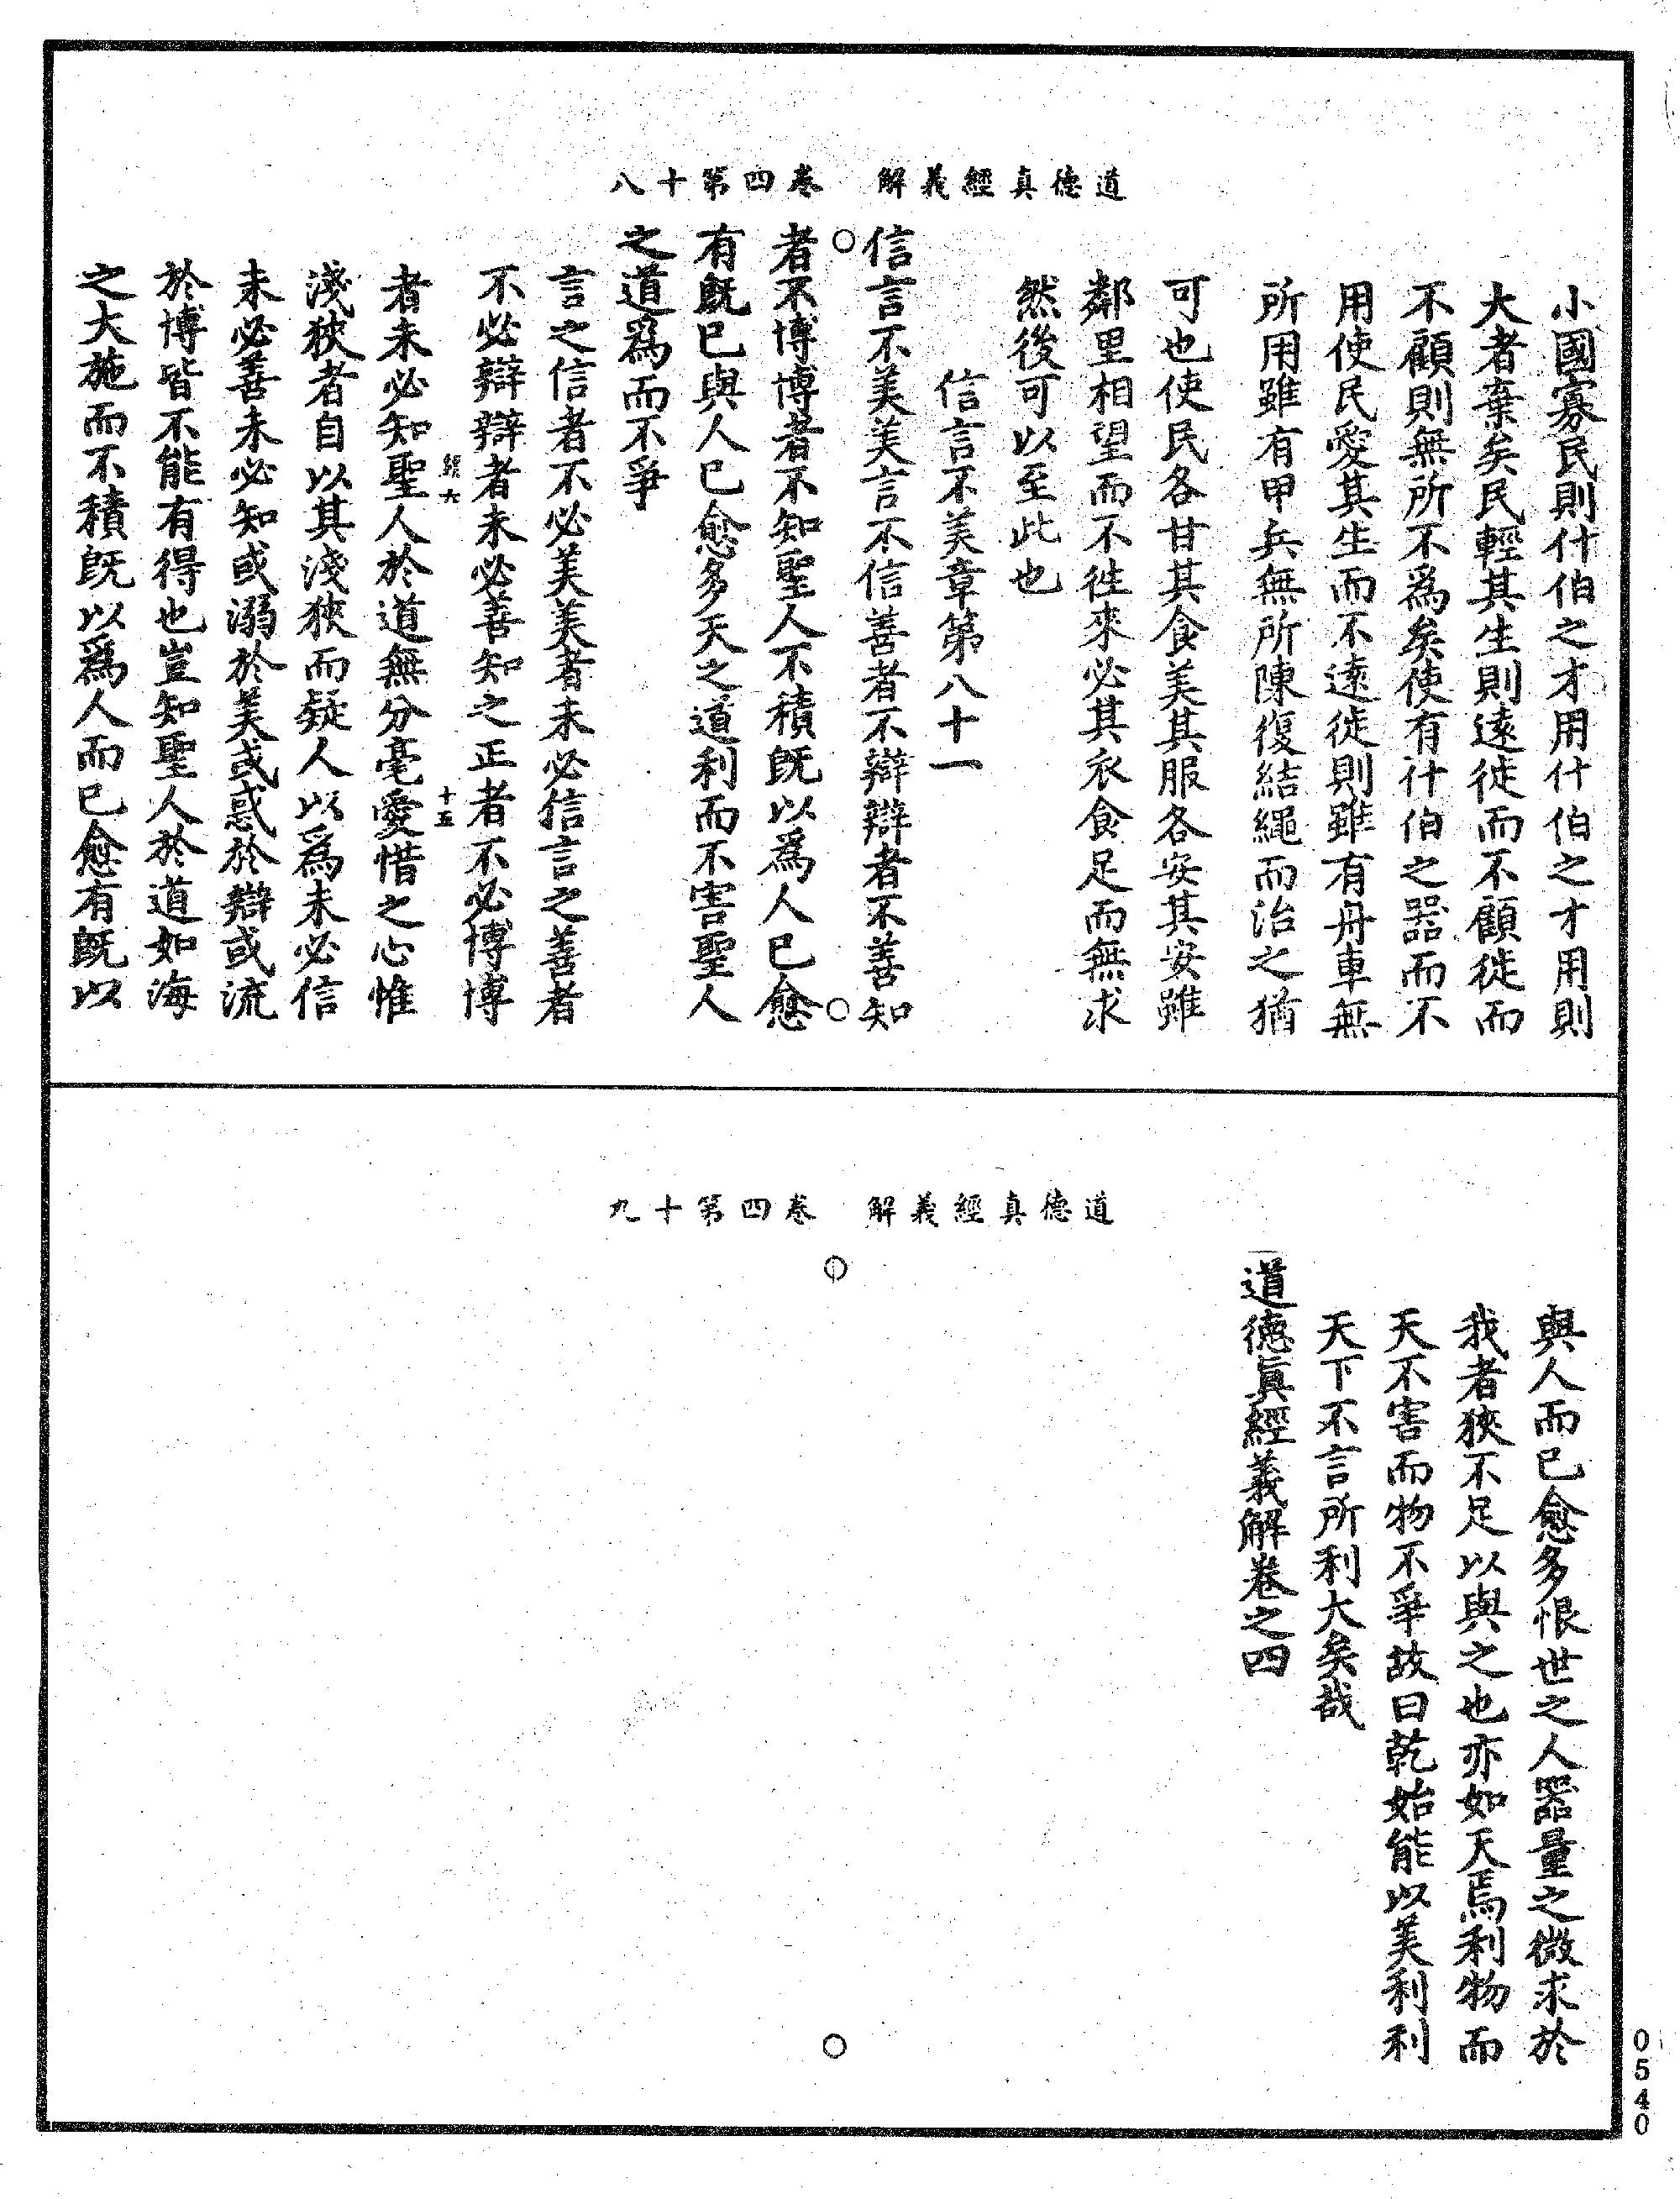 道德真經義解　卷四第十八
小國寡民則什伯之才用什伯之才用則
大者棄矣民輕其生則遠徙而不顧徙而
不顧則無所不爲矣使有什伯之器而不
用使民愛其生而不遠徙則雖有舟車無
所用雖有甲兵無所陳復結繩而治之猶
可也使民各甘其食美其服各安其安雖
鄰里相望而不徃來必其衣食足而無求
然後可以至此也
信言不美章第八十一
信言不美美言不信善者不辯辯者不善知
者不博博者不知聖人不積旣以爲人已愈
有旣已與人已愈多天之道利而不害聖人
之道爲而不爭
言之信者不必美美者未必信言之善者
不必辯辯者未必善知之正者不必博博
者未必知聖人於道無分毫愛惜之心惟
十五
淺狹者自以其淺狹而疑人以爲未必信
未必善未必知或溺於美或惑於辯或流
於博皆不能有得也豈知聖人於道如海
之大施而不積旣以爲人而已愈有旣以
道德真經義解　卷四第十九
與人而已愈多恨世之人器量之微求於
我者狹不足以與之也亦如天焉利物而
天不害而物不爭故曰乾始能以美利利
天下不言所利大矣哉
道德眞經義解卷之四
0540